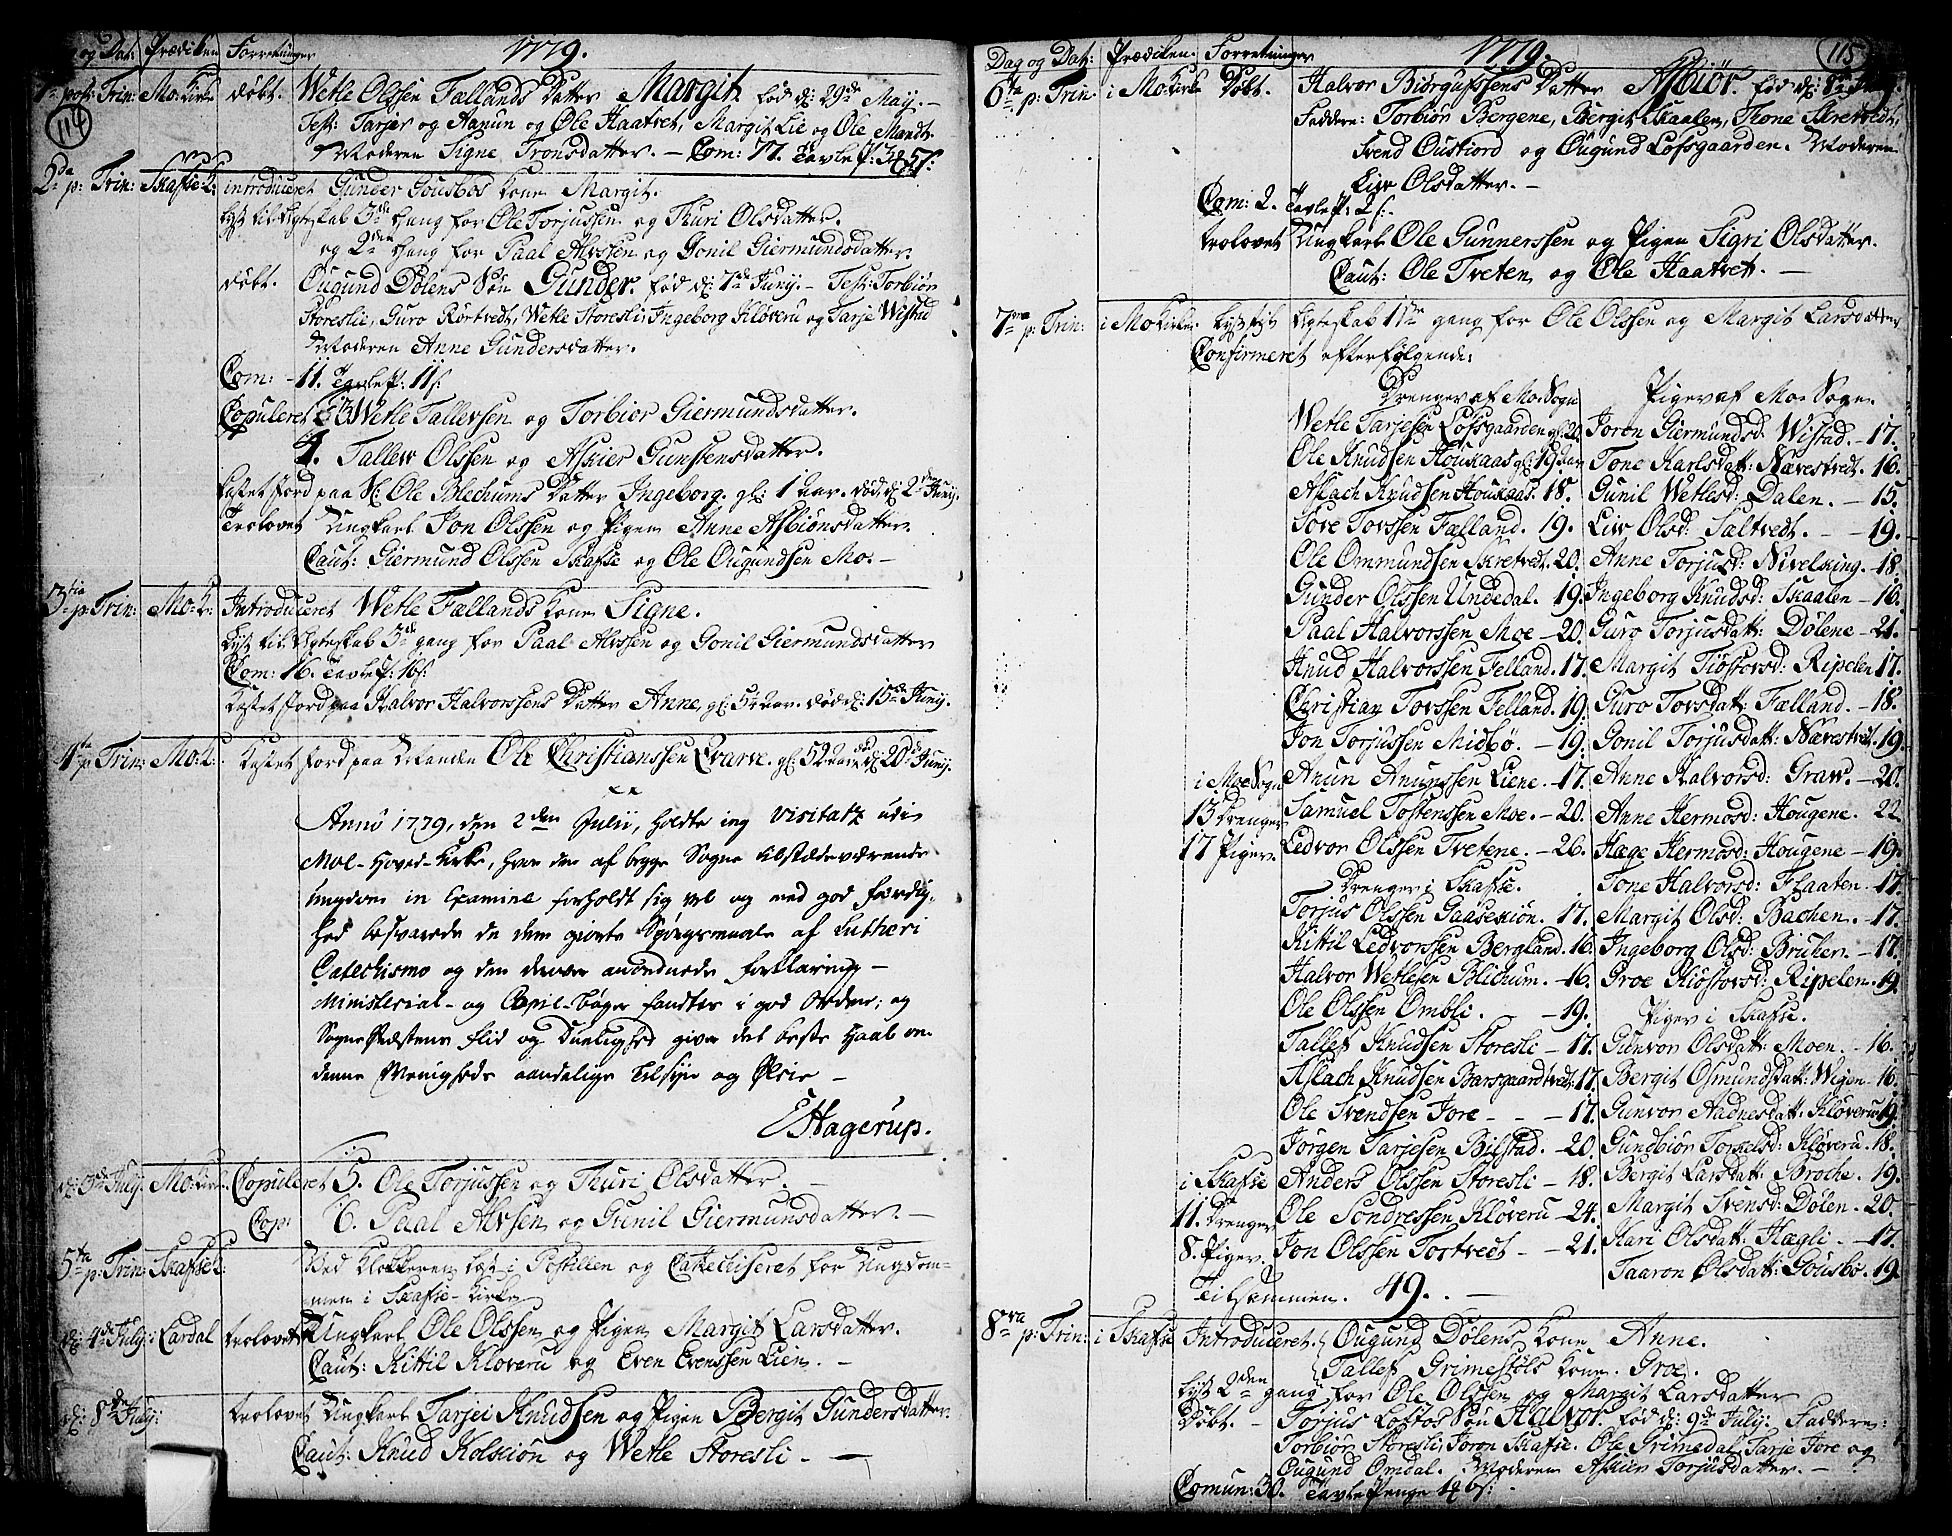 og Dat: Prædiken Forretninger 1779.
114
1ma post: Trin: Mo: Kirke døbt. Wetle Olssen Fællands Datter Margit. fød d: 29de May. -
Test: Tarjer og Aanun og Ole Haatvet, Margit Lie og Ole Mandt.
Moderen Signe Tronsdatter. - Com: 77.
2da p: Trin: Skafse K: introduceret Gunder Gousbøs Kone Margit.
Lyst til Egteskab 3de Gang for Ole Torjussen og Thuri Olsdatter.
og 2den Gang for Paal Alvssen og Gonil Giermundsdatter.
døbt. Ougund Dølens Søn Gunder. fød d: 7de Junij. - Test: Torbiør
Storeslie, Guro Rørtvedt, Wetle Storesli, Ingeborg Kløveru og Tarje Wistad
Moderen Anne Gundersdatter.
Com: - 11. Tavle P: 11 s.
Copuleret 3 Wetle Tallevsen og Torbior Giermundsdatter.
4. Tallew Olssen og Askier Gunstensdatter.
Kastet Jord paa Sl: Ole Blechums Datter Ingeborg. gl: 1 aar. død d: 2den Junij.
Trolovet Ungkarl Jon Olssen og Pigen Anne Asbiønsdatter.
Caut: Giermund Olssen Skafse og Ole Ougundsen Mo. -
3tia p: Trin: Mo: K: Introduceret Wetle Fællands Kone Signe.
Lyst til Egteskab 3de gang for Paal Alvssen og Gonil Giermundsdatter
Com: 16. Tavle P: 16 s.
Kastet Jord paa Halvor Halvorssens Datter Anne, gl: død d: 15de Junij.
4ta p: Trin: Mo: K: Kastet Jord paa Ole Christianssen Qvarve. gl: 52 aar d: 20de Junij.
Anno 1779, den 2den Julii, holdte jeg Visitatz udi
Moe-Hoved-Kirke, hvor den af begge Sogne tilstædeværende
Ungdom in Examine forholdt sig vel og med god færdig-
hed besvarede de dem giorte Spørgsmaale af Lutheri
Catechismo og den derover anordnede Forklaring -
Ministerial- og Copie-bøger fandtes i god Orden; og
Sogne Præstens Flid og Duelighed giver det beste Haab om
denne Menigheds aandelige Tilsyn og Pleie -
E Hagerup.
d: 3de Julij Mo: Kirke. Copuleret 5. Ole Torjussen og Thuri Olsdatter. -
Cop: 6. Paal Alvsen og Gunil Giermunsdatter. -
5ta p: Trin: Skafse K: Ved Klokkeren læst i Postillen og Catechiseret for Ungdom-
men i Skafse-Kirke
d: 4de Julij: i Lardal trolovet Ungkarl Ole Olssen og Pigen Margit Larsdatter.
Caut: Kittil Kloveru og Even Evenssen Lien. -
d: 8de Julij: trolovet Ungkarl Tarjei Knudsen og Pigen Bergit Gundersdatter.
Caut: Knud Kolskiøn og Wetle Storesli. -
Dag og Dat: Prædiken: Forretninger 1779. 115
6ta p: Trin: i Mo: Kirke Døbt. Halvor Biørgufssens Datter Asbiør. fød d: 8de
Faddere: Torbiør Bergene, Bergit Skaalen, Thone Skretvedt,
Svend Oustiord og Ougund Lofsgaarden. Moderen
Liw Olsdatter. -
Com: 2. Tavle P: 2 s.
trolovet Ungkarl Ole Gunnerssen og Pigen Sigri Olsdatter.
Caut: Ole Tveten og Ole Haatvet. -
7ma p: Trin: i Mo Kirke: Lyst til Egteskab 1ste gang for Ole Olssen og Margit Larsdatter
Confirmeret efterfølgende:
Drenger af Mo: Sogn Piger af Mo: Sogn.
Wetle Tarjesen Lofsgaarden gl: 20. Joron Giermundsd: Wistad. - 17.
Ole Knudsen Houkaas gl: 19 aar Tone Karlsdatt: Nævestvedt. 16.
Aslach Knudsen Houkaas. 18. Gunil Wetlesd: Dalen. - 15.
Tore Tovssen Fælland. 19. Liw Olsd: Sæltvedt. - - 19.
Ole Ommundsen Skretvedt. 20. Anne Torjusd: Nivelking. - 18
Gunder Olssen Undedal. 19. Ingeborg Knudsd: Skaalen - 16.
Paal Halvorssen Moe - 20. Guro Torjusdatt: Dølene - 21.
Knud Halvorssen Felland. 17. Margit Tiøstovsd: Ripelen 17.
Christian Tovssen Felland. 19. Guro Tovsdatt: Fælland. - 18.
Jon Torjussen Midbø. - 19. Gonil Torjusdatt: Nævestvet. 19.
Anun Anunssen Liene - 17. Anne Halvorsd: Graw. - 20.
i Moe Sogn
13 Drenger
17 Piger.
Samuel Tostenssen Moe. - 20. Anne Hermosd: Hougene. 22
Ledvor Olssen Tvetene. - 26. Hæge Hermosd: Hougene - 19.
Drenger i Skafse. Tone Halvorsd: Flaaten. 17.
Torjus Olssen Gaasekiøn. 17. Margit Olsd: Bachen. - 17.
Kittil Ledvorssen Bergland. 16. Ingeborg Olsd: Bruken. - 17.
Halvor Wetlesen Blichum. - 16. Groe Kiøstovsd: Ripelen. 19.
Ole Olssen Ombli. - 19. Piger i Skafse.
Tallef Knudsen Storesli - 17. Gunvor Olsdatt: Moen. - 16.
Aslach Knudsen Barsgaardtvedt. 17. Bergit Osmundsdatt: Wigen - 16.
Ole Svendsen Jore - - - 17. Gunvor Aadnesdatt: Kløveru 19.
Jørgen Tarjesen Bilstad. - 20. Gundbiør Torkelsd: Kløveru. 18.
i Skafse
11. Drenger
8. Piger.
Anders Olssen Storesli - 18. Bergit Larsdatt: Broche. 19.
Ole Sondressen Kløveru - 24. Margit Svensd: Dølen. 20.
Jon Olssen Tortvedt - - 21. Kari Olsdatt: Hægli. - 17.
Taaron Olsdatt: Gousbø. 19.
Tilsammen. 49. -
8va p: Trin: i Skafse Introduceret. Ougund Dølens Kone Anne.
Tallef Grimestøls Kone. Groe.
Lyst 2den gang for Ole Olssen og Margit Larsdatter
Døbt. - Torjus Loftos Søn Halvor. fød d: 9de Julij. Faddere:
Torbiør Storesli, Joron Skafse. Ole Grimedal, Tarje Jore og
Ougund Omdal. Moderen Askier Torjusdatter. -
Comun: 30. Tavle Penge